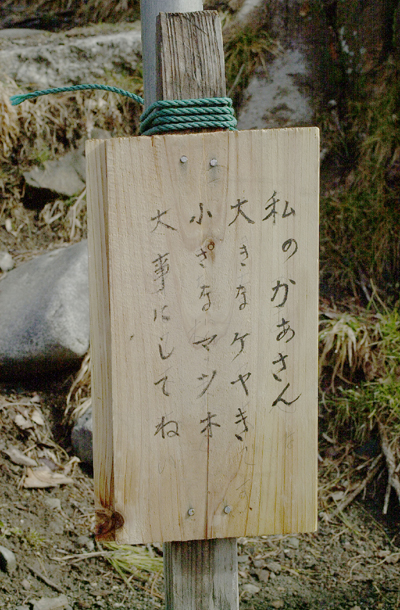 私のかあさん
大きなケヤき
小さなマツ木
大事にしてね